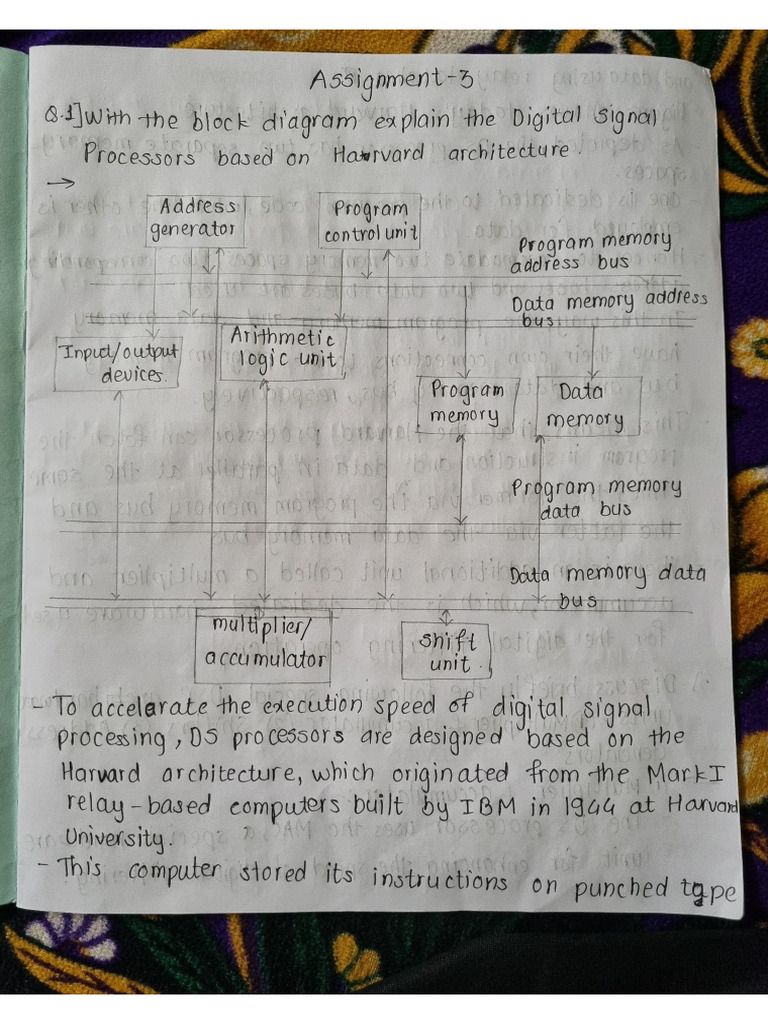 Assignment-3
Q.1] With the block diagram explain the Digital Signal
Processors based on Harvard architecture.
→
Address
generator
Program
control unit
Program memory
address bus
Data memory address
bus
Input/output
devices.
Arithmetic
logic unit
Program
memory
Data
memory
Program memory
data bus
Data memory data
bus
multiplier/
accumulator
shift
unit.
- To accelarate the execution speed of digital signal
processing, DS processors are designed based on the
Harvard architecture, which originated from the Mark I
relay-based computers built by IBM in 1944 at Harvard
University.
- This computer stored its instructions on punched tape